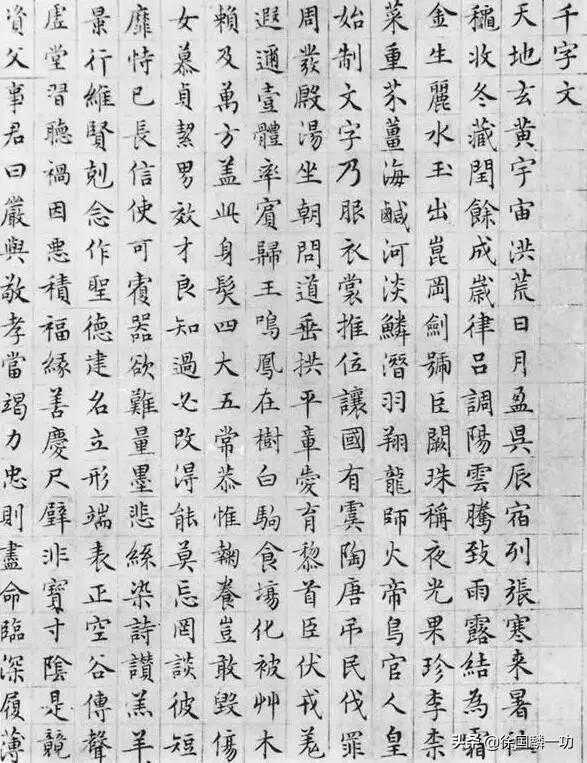 千字文
天地玄黃宇宙洪荒日月盈昃辰宿列張寒来暑往
穐收冬藏閏餘成歲律呂調陽雲騰致雨露結為霜
金生麗水玉出崑岡劍號巨闕珠稱夜光果珍李柰
菜重芥薑海鹹河淡鱗潛羽翔龍師火帝鳥官人皇
始制文字乃服衣裳推位讓國有虞陶唐弔民伐罪
周發殷湯坐朝問道垂拱平章愛育黎首臣伏戎羌
遐邇壹體率賓歸王鳴鳳在樹白駒食場化被艸木
賴及萬方盖此身髮四大五常恭惟鞠養豈敢毀傷
女慕貞絜男效才良知過必改得能莫忘罔談彼短
靡恃已長信使可覆器欲難量墨悲絲染詩讃羔羊
景行維賢剋念作聖德建名立形端表正空谷傳聲
虛堂習聽禍因惡積福緣善慶尺璧非寶寸陰是競
資父事君曰嚴與敬孝當竭力忠則盡命臨深履薄
头条@徐国麟一功